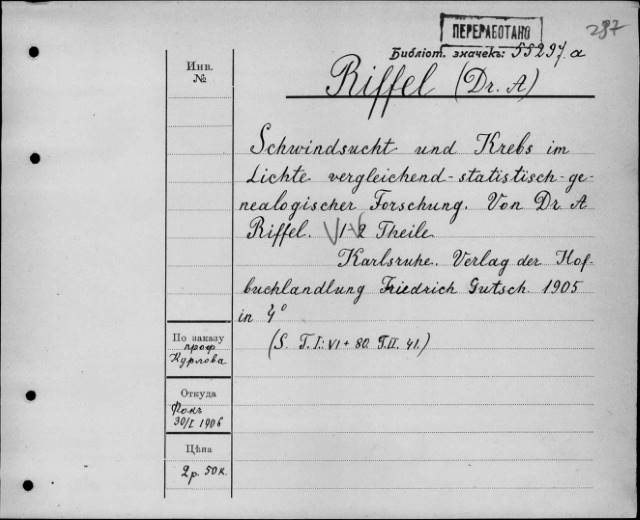 ПЕРЕРАБОТАНО
287
Библіот. значекъ: 55297.a
Инв.
№
Riffel (Dr. A)
Schwindsucht und Krebs im
Lichte vergleichend-statistisch-ge-
nealogischer Forschung. Von Dr. A
Riffel. 1-2 Theile
Karlsruhe. Verlag der Hof-
buchlandlung Friedrich Gutsch. 1905
in 4°
(S. T.I: VI + 80. T.II. 41.)
По заказу
проф
Курлова
Откуда
Фокъ
30/I 1906
Цѣна
2 р. 50 к.